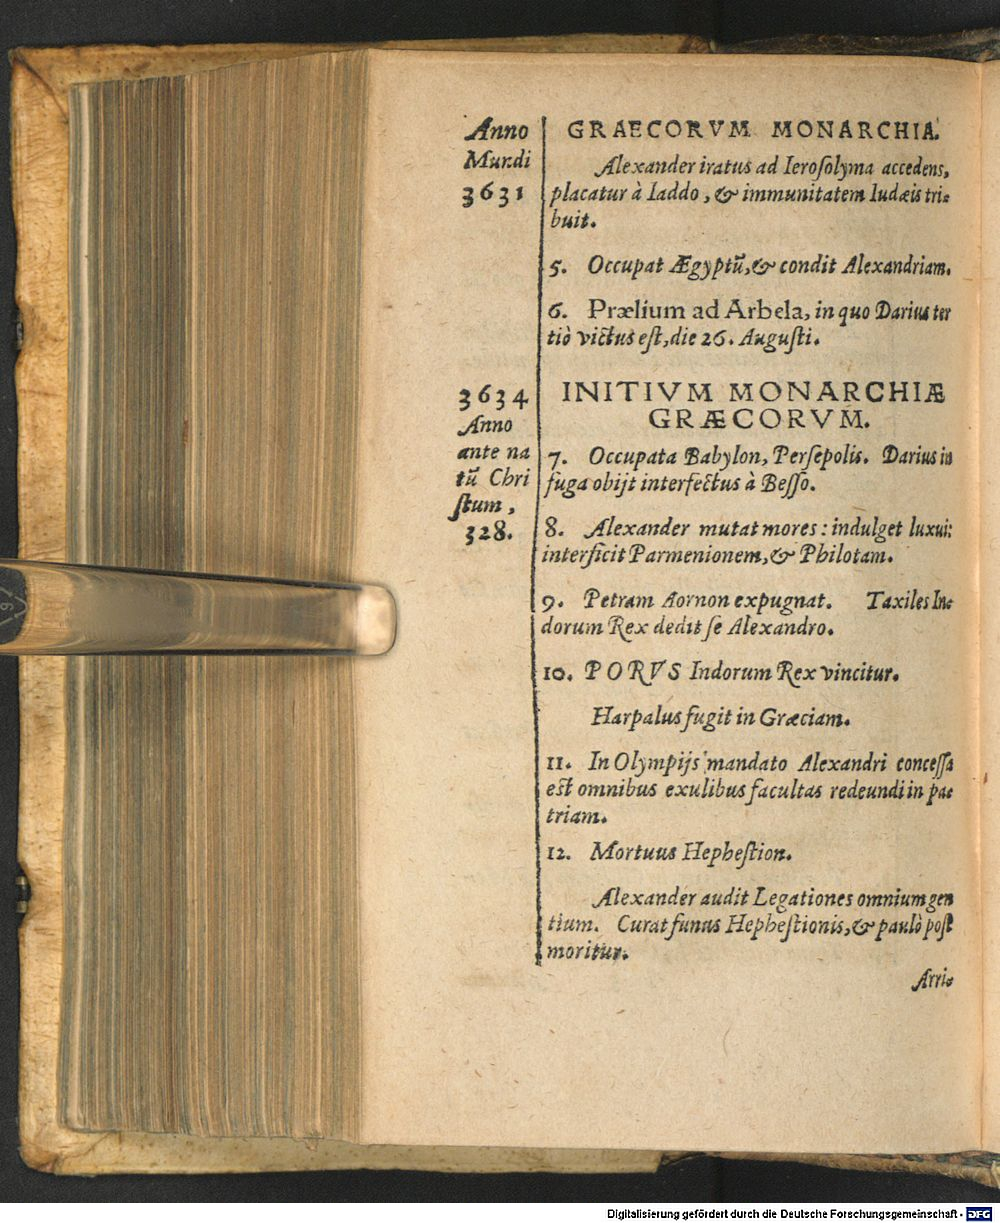 Anno
Mundi
3631
GRAECORVM MONARCHIA.
Alexander iratus ad Ieroſolyma accedens,
placatur à Iaddo, & immunitatem Iudæis tri-
buit.
5. Occupat Ægyptũ, & condit Alexandriam.
6. Prælium ad Arbela, in quo Darius ter
tiò victus eſt, die 26. Auguſti.
3634
Anno
ante na
tũ Chri
ſtum,
328.
INITIVM MONARCHIÆ
GRÆCORVM.
7. Occupata Babylon, Perſepolis. Darius in
fuga obijt interfectus à Beſſo.
8. Alexander mutat mores: indulget luxui:
interficit Parmenionem, & Philotam.
9. Petram Aornon expugnat. Taxiles In-
dorum Rex dedit ſe Alexandro.
10. PORVS Indorum Rex vincitur.
Harpalus fugit in Græciam.
11. In Olympijs mandato Alexandri conceſſa
est omnibus exulibus facultas redeundi in pa-
triam.
12. Mortuus Hepheſtion.
Alexander audit Legationes omnium gen
tium. Curat funus Hepheſtionis, & paulò poſt
moritur.
Arri-
Digitalisierung gefördert durch die Deutsche Forschungsgemeinschaft - DFG